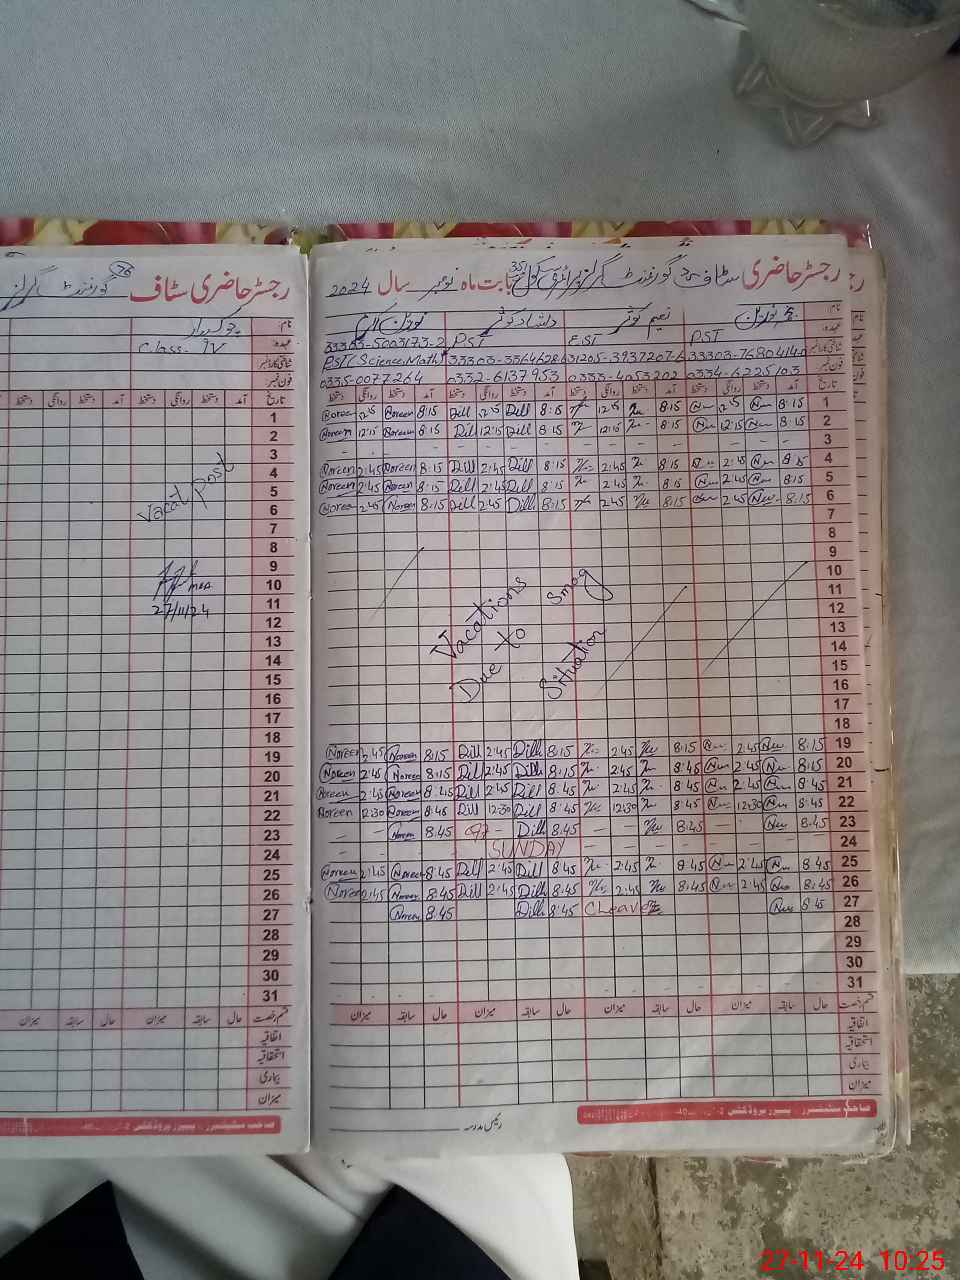 رجسٹر حاضری سٹاف گورنمنٹ گرلز پرائمری سکول بابت ماہ نومبر سال 2024
نام: نورین دلشاد کوثر نعیم کوثر نورین
عہدہ: PST EST PST 33303-5003173-2
شناختی کارڈ نمبر 33303-7680414-0 31205-3937207-6 33303-3364628-6 PST Science Math
فون نمبر 0334-6225103 0333-4053202 0332-6137953 0335-0077264
تاریخ آمد دستخط روانگی دستخط آمد دستخط روانگی دستخط آمد دستخط روانگی دستخط آمد دستخط روانگی دستخط
1 8:15 8:15 12:15 8:15 Dill 12:15 Dill 8:15 Noreen 12:15 Noreen
2 8:15 12:15 8:15 12:15 8:15 Dill 12:15 Dill 8:15 Noreen 12:15 Noreen
3 - - - -
4 8:15 2:45 8:15 2:45 8:15 Dill 2:45 Dill 8:15 Noreen 2:45 Noreen
5 8:15 2:45 8:15 2:45 8:15 Dill 2:45 Dill 8:15 Noreen 2:45 Noreen
6 8:15 2:45 8:15 2:45 8:15 Dill 2:45 Dill 8:15 Noreen 2:45 Noreen
7
8
9
10
11
12
13
14
15
16
17
18
Vacations
Due to Smog
Situation
19 8:15 2:45 8:15 2:45 8:15 Dill 2:45 Dill 8:15 Noreen 2:45 Noreen
20 8:15 2:45 8:45 2:45 8:15 Dill 2:45 Dill 8:15 Noreen 2:45 Noreen
21 8:45 2:45 8:45 2:45 8:45 Dill 2:45 Dill 8:45 Noreen 2:45 Noreen
22 8:45 12:30 8:45 12:30 8:45 Dill 12:30 Dill 8:45 Noreen 12:30 Noreen
23 8:45 - - 8:45 - - 8:45 Dill - 8:45 Noreen - -
24 SUNDAY
25 8:45 2:45 8:45 2:45 8:45 Dill 2:45 Dill 8:45 Noreen 2:45 Noreen
26 8:45 2:45 8:45 2:45 8:45 Dill 2:45 Dill 8:45 Noreen 2:45 Noreen
27 8:45 C Leave 8:45 Dill 8:45 Noreen
28
29
30
31
قسم رخصت حال سابقہ میزان حال سابقہ میزان حال سابقہ میزان حال سابقہ میزان
اتفاقیہ
استحقاقیہ
بیماری
میزان
رئیس مدرسہ
رجسٹر حاضری سٹاف گورنمنٹ گرلز
76
نام: چوکیدار
عہدہ: Class-IV
شناختی کارڈ نمبر
فون نمبر
تاریخ آمد دستخط روانگی دستخط آمد دستخط روانگی دستخط
1
2
3
4
5
6
7
8
9
10
11
12
13
14
15
16
17
18
19
20
21
22
23
24
25
26
27
28
29
30
31
Vacat post
27/11/24
قسم رخصت حال سابقہ میزان حال سابقہ میزان
اتفاقیہ
استحقاقیہ
بیماری
میزان
27-11-24 10:25